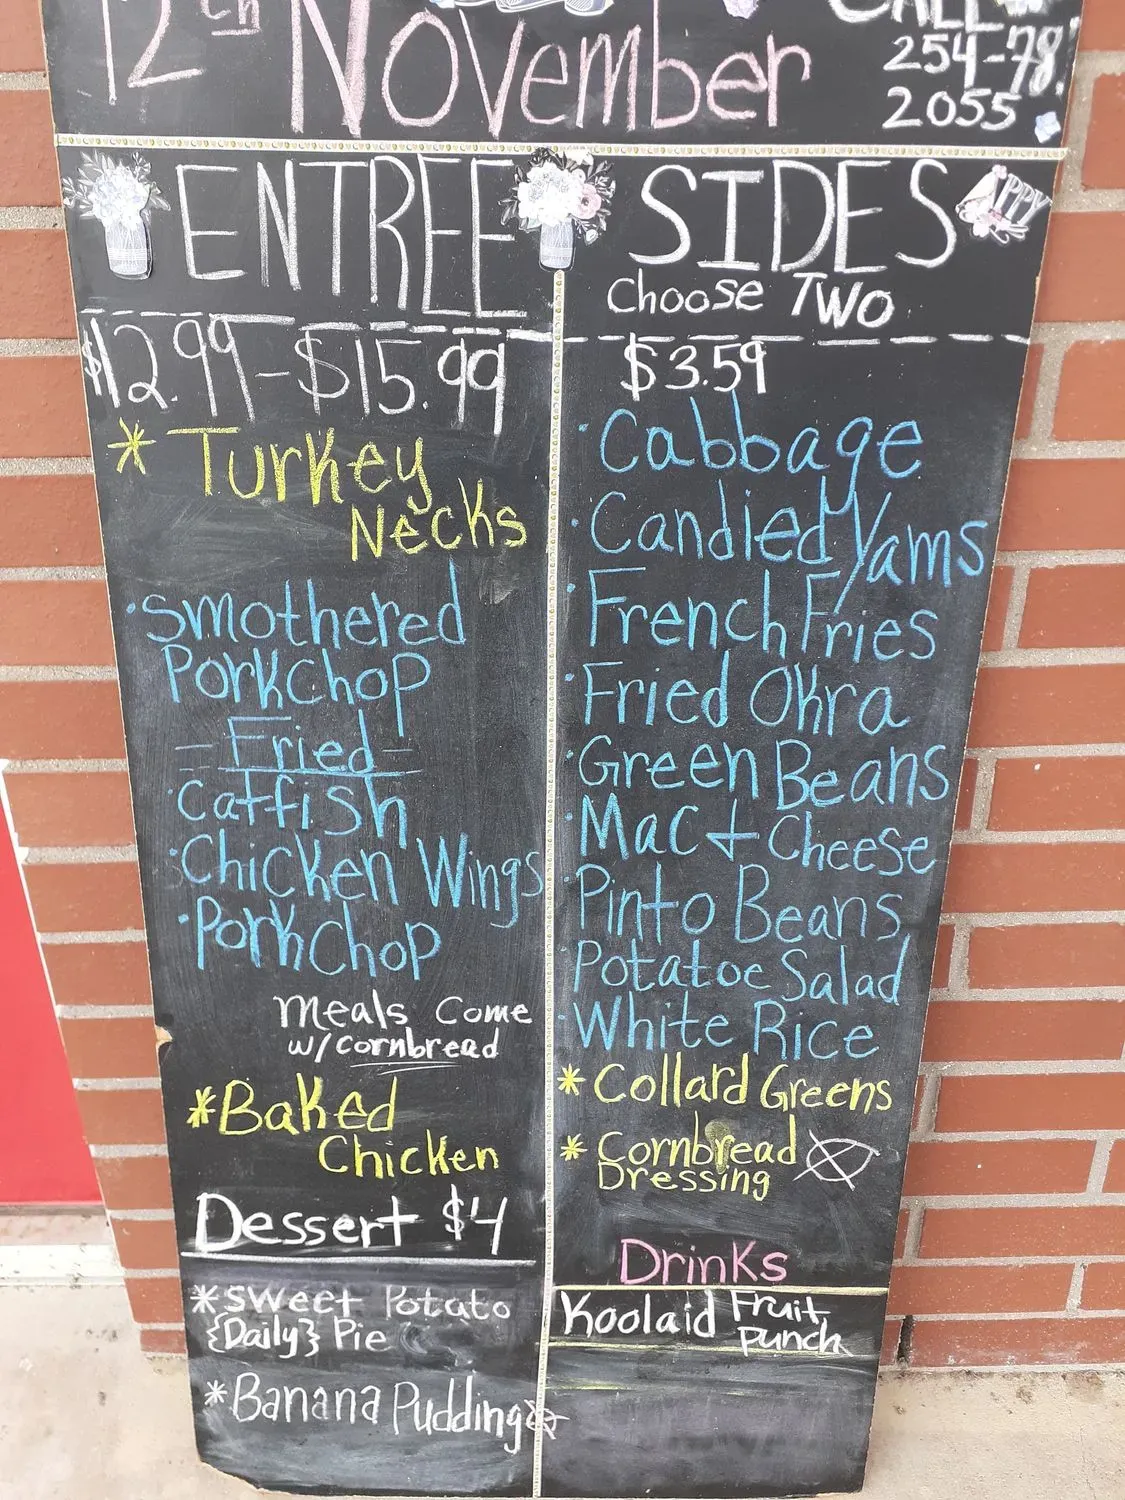 12th November
CALL
254-78
2055
ENTREE
$12.99-$15.99
* Turkey
Necks
·Smothered
Porkchop
- Fried -
Catfish
·Chicken Wings
·Porkchop
Meals Come
w/cornbread
*Baked
Chicken
Dessert $4
*Sweet Potato
{Daily} Pie
*Banana Pudding
SIDES
PPY
Choose TWO
$3.59
·Cabbage
·Candied Yams
·French Fries
·Fried Okra
·Green Beans
·Mac + Cheese
·Pinto Beans
·Potatoe Salad
·White Rice
* Collard Greens
* Cornbread
Dressing
Drinks
Koolaid Fruit
Punch